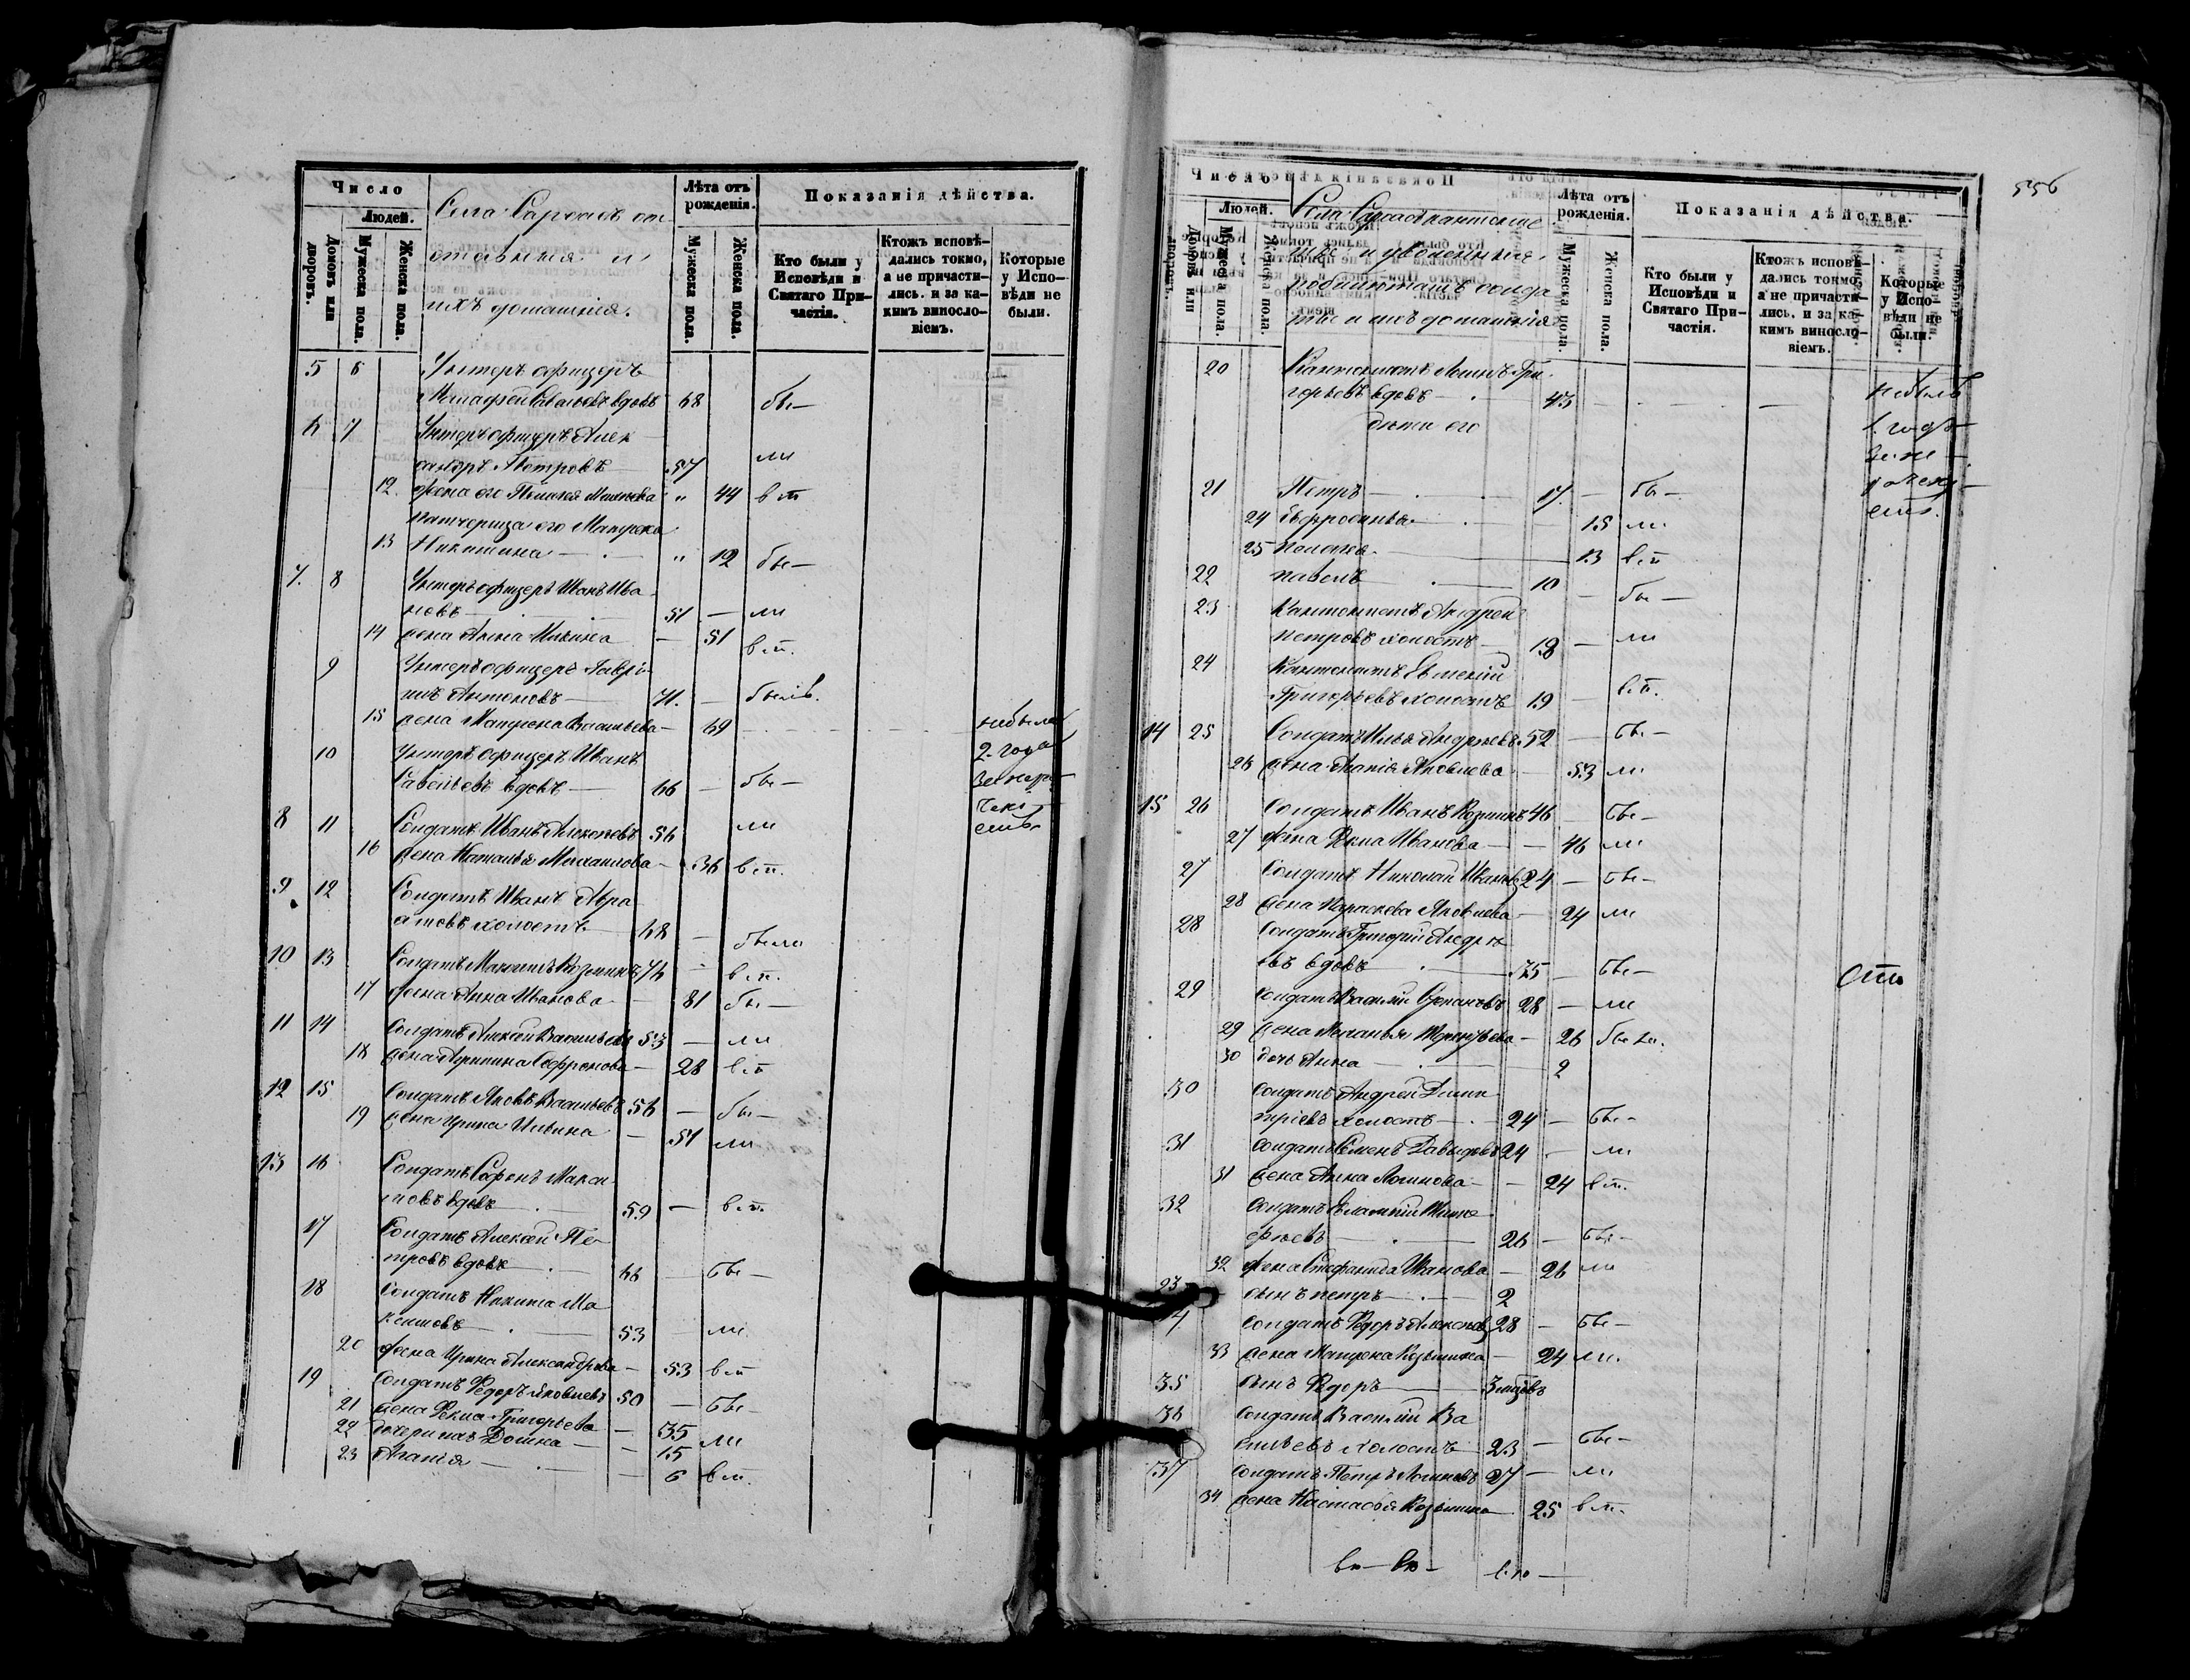 Число
Людей.
Домовъ или дворовъ.
Мужеска пола.
Женска пола.
Села от
ставныя и
ихъ домашнія.
Лѣта отъ рожденія.
Мужеска пола.
Женска пола.
Показанія дѣйства.
Кто были у Исповѣди и Святаго Причастія.
Ктожъ исповѣдались токмо, а не причастились. и за какимъ винословіемъ.
Которые у Исповѣди не были.
5 6 Унтеръ офицеръ
Савельевъ вдовъ 68 бы—
6 7 Унтеръ офицеръ Алек
сандръ Петровъ 57 ли
12 жена его " 44 в п
падчерица его Матрена
13 Никитина " 12 бы—
7. 8 Унтеръ офицеръ Иванъ Ива
новъ 51 — ли
14 жена Анна Ильина — 51 в п.
9 Унтеръ офицеръ Гаври
илъ Антоновъ 71. — былъ.
15 жена Матрена Васильева — 69 небыла
2. года
10 Унтеръ офицеръ Иванъ
Савельевъ вдовъ 66 — бы—
8 11 Солдатъ Иванъ Алексѣевъ 56 ли
16 жена Наталья Михаилова — 36 в п.
9 12 Солдатъ Иванъ Абра
амовъ холостъ 68 — были
10 13 Солдатъ Максимъ Козминъ 76 — в п.
17 жена Анна Иванова — 81 бы—
11 14 Солдатъ Алексѣй Васильевъ 53 — ли
18 жена Агрипина Сафронова — 28 в п
12 15 Солдатъ Яковъ Васильевъ 56 — бы—
19 жена Ирина Ильина — 51 ли
13 16 Солдатъ Сафонъ Макси
мовъ вдовъ 59 — в п.
17 Солдатъ Алексѣй Пе
тровъ вдовъ 66 — бы—
18 Солдатъ Никита Ма
53 ли
20 жена Ирина Александрова — 53 в п
19 Солдатъ Федоръ Яковлевъ 50 — бы—
21 жена Фекла Григорьева — 35 ли
22 дочери ихъ Домна — 15
23 Агапія — 6 в п.
556
Число
Людей.
Домовъ или дворовъ.
Мужеска пола.
Женска пола.
Села кантонис
ты и
солда
ты и ихъ домашнія
Лѣта отъ рожденія.
Мужеска пола.
Женска пола.
Показанія дѣйства.
Кто были у Исповѣди и Святаго Причастія.
Ктожъ исповѣдались токмо, а не причастились. и за какимъ винословіемъ.
Которые у Исповѣди не были.
20 Кантонистъ Логинъ Гри
горьевъ вдовъ 43 — небылъ
дѣти его 1. годъ
21 Петръ 17. — бы—
24 Ефросинья 15 ли
25 Пелагея 13 в п
22 Павелъ 10 — бы—
23 Кантонистъ Андрей
Петровъ холостъ 18 — ли
24 Кантонистъ Евмений
Григорьевъ холостъ 19 — в п.
14 25 Солдатъ Илья Андреевъ 52 — бы—
26 жена Агапія Яковлева — 53 ли
15 26 Солдатъ Иванъ Козминъ 46 — бы—
27 жена Фекла Иванова — 46 ли
27 Солдатъ Николай Ивановъ 24 — бы—
28 жена Параскева Яковлева — 24 ли
28 Солдатъ Григорій Андре
евъ вдовъ 75 — бы—
29 Солдатъ Василий Степановъ 28 — ли
29 жена Меланья Терентьева — 26 бы ли.
30 дочь Анна 2
30 Солдатъ Андрей Дими
тріевъ холостъ 24 — бы—
31 Солдатъ Семенъ Давыдовъ 24 — ли
31 жена Анна Логинова — 24 в п.
32 Солдатъ
26 — бы—
32 жена Стефанида Иванова — 26 ли
33 сынъ Петръ 2
4 Солдатъ Федоръ Алексѣевъ 28 — бы—
33 жена Матрена Козьмина — 24 ли.
35 сынъ Федоръ 3 мѣсяцовъ
36 Солдатъ Василій Ва
сильевъ холостъ 23 — бы—
37 Солдатъ Петръ Логиновъ 27 — ли
34 жена Настасья Козьмина 25 в п.